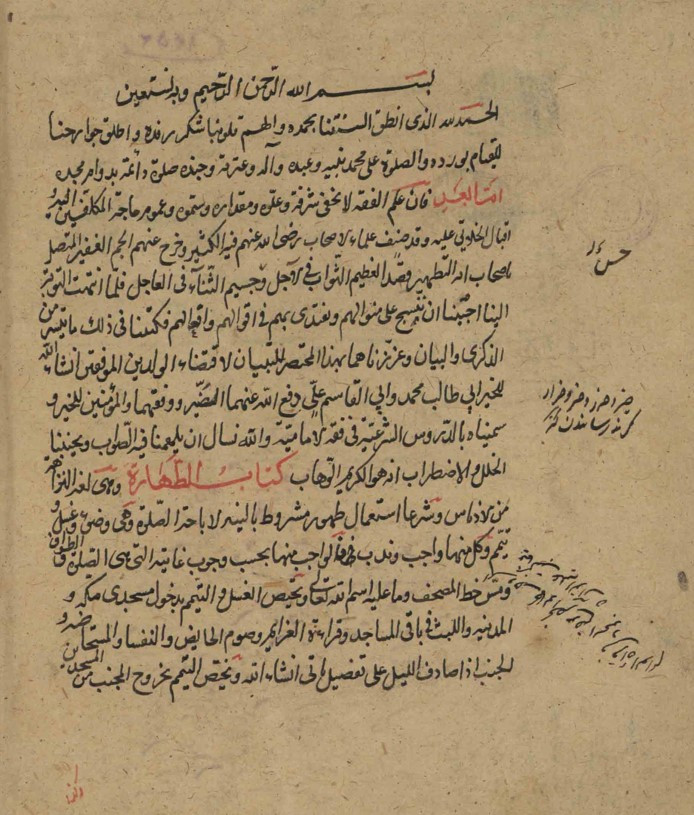 بسم الله الرحمن الرحيم وبه نستعين
الحمد لله الذى انطق السنتنا بحمده والهم قلوبنا شكر رفده واطلق جوارحنا
للقيام بورده والصلوة على محمد نبيه وعبده وآله وعترته وجنده صلوة دائمة بدوام مجده
اما بعد فان علم الفقه لا يخفى شرفه وعلوه ومقداره وسموه وعموم حاجة المكلفين اليه و
اقبال الخلايق عليه وقد صنف علماء الاصحاب رضى الله عنهم فيه الكثير وخرج عنهم الجم الغفير المتصل
باصحاب اية التطهير وقصدا لعظيم الثواب فى الآجل وجسيم الثناء فى العاجل فلما انتهت النوبة
الينا احببنا ان ننسج على منوالهم ونقتدى بهم فى اقوالهم وافعالهم فكتبنا فى ذلك ما تيسر من
الذكرى والبيان وعززناهما بهذا المختصر للتبيان لاقتضاء الولدين الموفقين انشاء الله
للخير ابي طالب محمد وابي القاسم على دفع الله عنهما المضر ووفقهما والمؤمنين للخير و
سميناه بالدروس الشرعية فى فقه الامامية والله نسال ان يلهمنا فيه الصواب ويجنبنا
الخلل والاضطراب انه هو الكريم الوهاب كتاب الطهارة وهى لغة النزاهة
من الادناس وشرعا استعمال طهور مشروط بالنية لاباحة الصلوة وهى وضوء وغسل و
تيمم وكل منها واجب وندب فالواجب منها بحسب وجوب غايته التى هى الصلوة والطواف
ومس خط المصحف وما عليه اسم الله تعالى ويخص الغسل والتيمم بدخول مسجدى مكة و
المدينة واللبث فى باقى المساجد وقراءة العزائم وصوم الحايض والنفسا والمستحاضة و
الجنب اذا صادف الليل على تفصيل ياتى انشاء الله ويختص التيمم بخروج المجنب من المسجدين